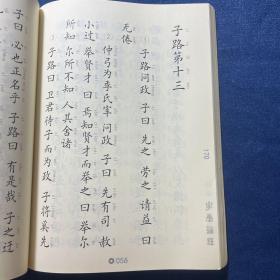 子路第十三
①子路问政 子曰 先之 劳之 请益 曰
无倦
②仲弓为季氏宰 问政 子曰 先有司 赦
小过 举贤才 曰 焉知贤才而举之 曰 举尔
所知 尔所不知 人其舍诸
③子路曰 卫君待子而为政 子将奚先
子曰 必也正名乎 子路曰 有是哉 子之迂
056
170